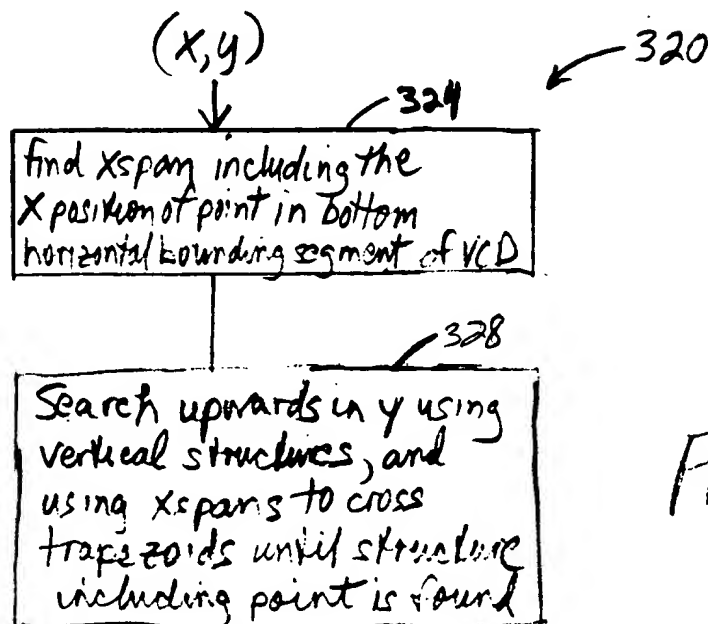 (x,y)
320
324
find xspan including the
X position of point in bottom
horizontal bounding segment of VCD
328
Search upwards in y using
vertical structures, and
using xspans to cross
trapezoids until structure
including point is found
F